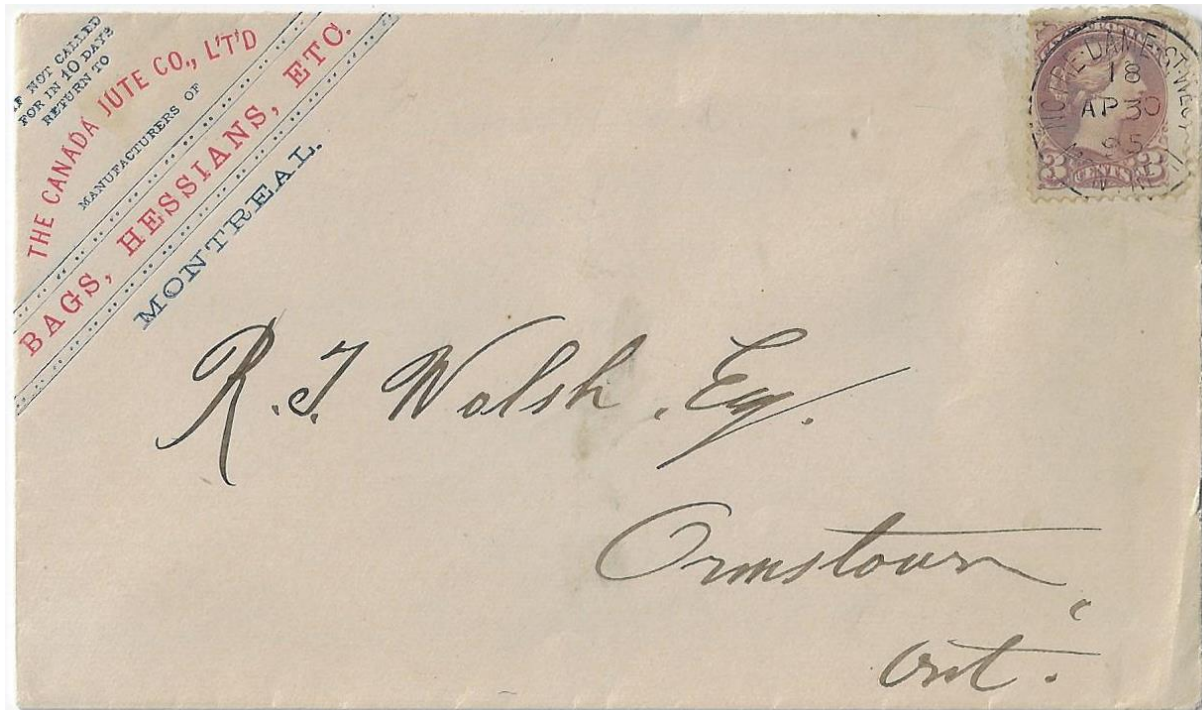 IF NOT CALLED
FOR IN 10 DAYS
RETURN TO
THE CANADA JUTE CO., L'T'D
MANUFACTURERS OF
BAGS, HESSIANS, ETC.
MONTREAL.
NOTRE DAME ST. WEST
18
AP 30
95
3 CENTS 3
R. J. Walsh, Esq.
Ormstown,
Ont.